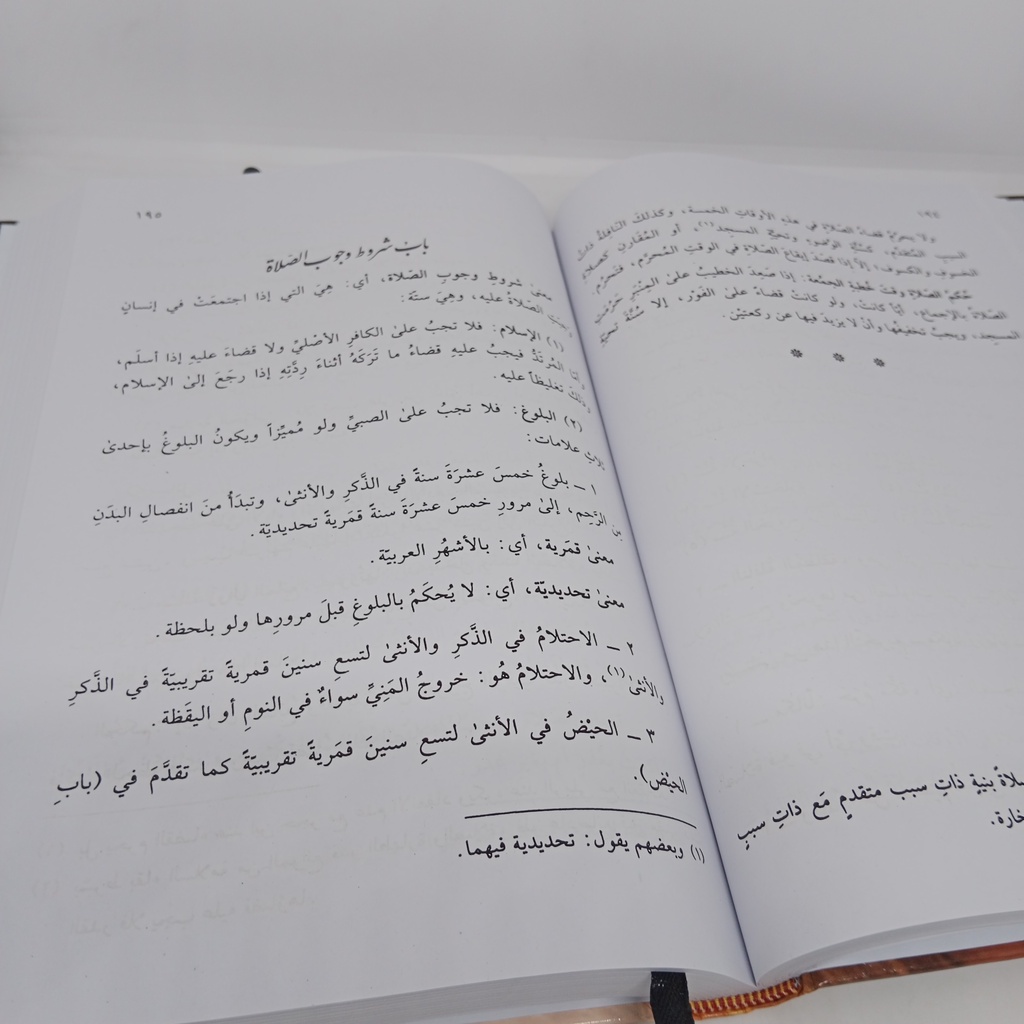 ١٩٤
ولا يحرمُ قضاءُ الصلاةِ في هذهِ الأوقاتِ الخمسة، وكذلكَ النافلةُ ذاتُ
السببِ المُتقدِّم، كسُنَّةِ الوضوءِ وتحيةِ المسجد(١)، أو المُقارنِ كصلاةِ
الخسوفِ والكسوف، إلاَّ إذا قصدَ إيقاعَ الصلاةِ في الوقتِ المُحرَّم، فتَحرُم.
حُكمُ الصلاةِ وقتَ خُطبةِ الجمعة: إذا صَعِدَ الخطيبُ على المِنْبَرِ حَرُمَتِ
الصلاةُ بالإجماع، أيًّا كانَت، ولو كانَت قضاءً علىٰ الفَوْر، إلا سُنَّةَ تحيَّةِ
المسجد، ويجبُ تخفيفُها وأنْ لا يزيدَ فيها عن ركعتيْن.
* * *
بنيةِ ذاتِ سبب متقدمٍ مَع ذاتِ سببٍ
١٩٥
باب شروط وجوب الصَّلاة
معنى شروطِ وجوبِ الصَّلاة، أي: هِيَ التي إذا اجتمعَتْ في إنسانٍ
الصلاةُ عليه، وهِيَ ستَّة:
(١) الإسلام: فلا تجبُ علىٰ الكافرِ الأصْليِّ ولا قضاءَ عليهِ إذا أسلَم،
وأمَّا المُرتَدُّ فيجبُ عليهِ قضاءُ ما تَرَكَهُ أثناءَ رِدَّتِهِ إذا رجَعَ إلىٰ الإسلام،
وذلكَ تغليظاً عليه.
(٢) البلوغ: فلا تجبُ علىٰ الصبيِّ ولو مُميِّزاً ويكونُ البلوغُ بإحدىٰ
علامات:
١ ـ بلوغُ خمسَ عشرَةَ سنةً في الذَّكرِ والأنثىٰ، وتبدَأُ منَ انفصالِ البدَنِ
الرَّحِم، إلىٰ مرورِ خمسَ عشرَةَ سنةً قمَريةً تحديديّة.
معنىٰ قمَرية، أي: بالأشهُرِ العربيّة.
معنىٰ تحديديّة، أي: لا يُحكَمُ بالبلوغِ قبلَ مرورِها ولو بلحظة.
٢ ـ الاحتلامُ في الذَّكرِ والأنثىٰ لتسعِ سنينَ قمريةً تقريبيّةً في الذَّكرِ
والأنثىٰ(١)، والاحتلامُ هُو: خروجُ المَنِيِّ سواءٌ في النومِ أو اليقَظة.
٣ ـ الحيْضُ في الأنثىٰ لتسعِ سنينَ قمَريةً تقريبيّةً كما تقدَّمَ في (بابِ
الحيْض).
(١) وبعضهم يقول: تحديدية فيهما.